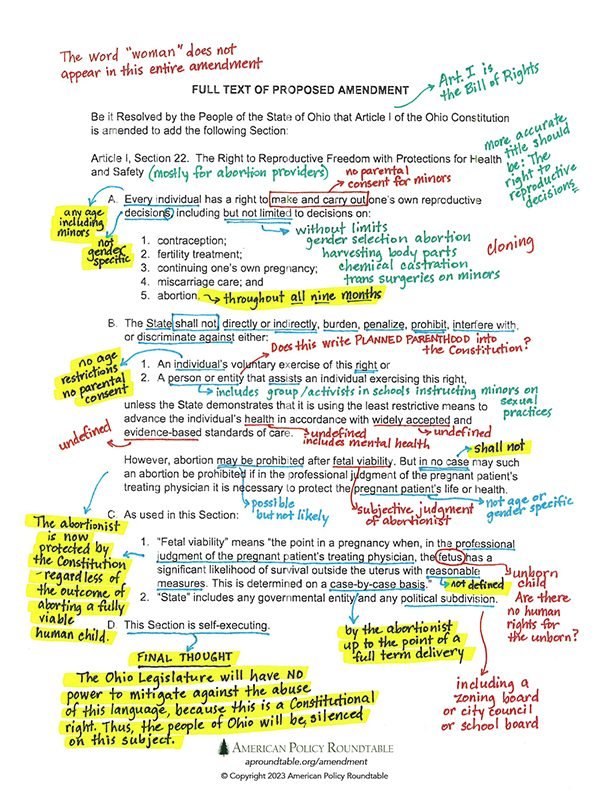 The word "woman" does not
appear in this entire amendment
Art. I is
the Bill of Rights
FULL TEXT OF PROPOSED AMENDMENT
Be it Resolved by the People of the State of Ohio that Article I of the Ohio Constitution
is amended to add the following Section:
more accurate
title should
be: The
right to
reproductive
decisions
Article I, Section 22. The Right to Reproductive Freedom with Protections for Health
and Safety (mostly for abortion providers)
no parental
consent for minors
A. Every individual has a right to make and carry out one's own reproductive
decisions, including but not limited to decisions on:
any age
including
minors
not
gender
specific
without limits
gender selection abortion
harvesting body parts
chemical castration
trans surgeries on minors
cloning
1. contraception;
2. fertility treatment;
3. continuing one's own pregnancy;
4. miscarriage care; and
5. abortion. throughout all nine months
B. The State shall not, directly or indirectly, burden, penalize, prohibit, interfere with,
or discriminate against either:
Does this write PLANNED PARENTHOOD into
the Constitution?
no age
restrictions
no parental
consent
1. An individual's voluntary exercise of this right or
2. A person or entity that assists an individual exercising this right,
includes group/activists in schools instructing minors on
sexual
practices
unless the State demonstrates that it is using the least restrictive means to
advance the individual's health in accordance with widely accepted and
evidence-based standards of care.
undefined
undefined
includes mental health
undefined
shall not
However, abortion may be prohibited after fetal viability. But in no case may such
an abortion be prohibited if in the professional judgment of the pregnant patient's
treating physician it is necessary to protect the pregnant patient's life or health.
possible
but not likely
subjective judgment
of abortionist
not age or
gender specific
C. As used in this Section:
The abortionist
is now
protected by
the Constitution
- regardless of
the outcome of
aborting a fully
viable
human child.
1. "Fetal viability" means "the point in a pregnancy when, in the professional
judgment of the pregnant patient's treating physician, the fetus has a
significant likelihood of survival outside the uterus with reasonable
measures. This is determined on a case-by-case basis."
not defined
unborn
child
Are there
no human
rights for
the unborn?
2. "State" includes any governmental entity and any political subdivision.
D. This Section is self-executing.
by the abortionist
up to the point of a
full term delivery
including a
zoning board
or city council
or school board
FINAL THOUGHT
The Ohio Legislature will have NO
power to mitigate against the abuse
of this language, because this is a Constitutional
right. Thus, the people of Ohio will be silenced
on this subject.
AMERICAN POLICY ROUNDTABLE
aproundtable.org/amendment
© Copyright 2023 American Policy Roundtable